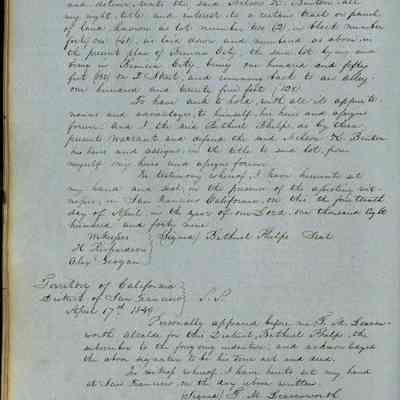 and deliver unto the said Nelson K. Benton all
my right, title and interest to a certain tract or parcel
of land known as lot number two (2) in block number
forty one (41) as laid down and numbered as above, in
the present plan of Benicia City, the said lot lying and
being in Benicia City, being one hundred and fifty
feet (150) on I Street, and running back to an alley
one hundred and twenty five feet (125)
To have and to hold, with all its appurte-
nances and advantages, to himself, his heirs and assigns
forever. And I the said Bethuel Phelps do by these
presents warrant and defend the said Nelson K. Benton
his heirs and assigns, in the title to said lot, from
myself my heirs and assigns forever.
In testimony whereof, I have hereunto set
my hand and seal, in the presence of the subscribing wit-
nesses, in San Francisco California, on this the fourteenth
day of April, in the year of our Lord, one thousand eight
hundred and forty nine
Witnesses } Signed/ Bethuel Phelps Seal
H Richardson
Alex Grogan
Territory of California }
District of San Francisco } S.S.
April 17th 1849
Personally appeared before me T. M. Leaven-
worth Alcalde for this District, Bethuel Phelps, the
subscriber to the foregoing indenture, and acknowledged
the above signature to be his true act and deed.
In witness whereof, I have hereto set my hand
at San Francisco, on the day above written.
Signed/ T. M. Leavenworth